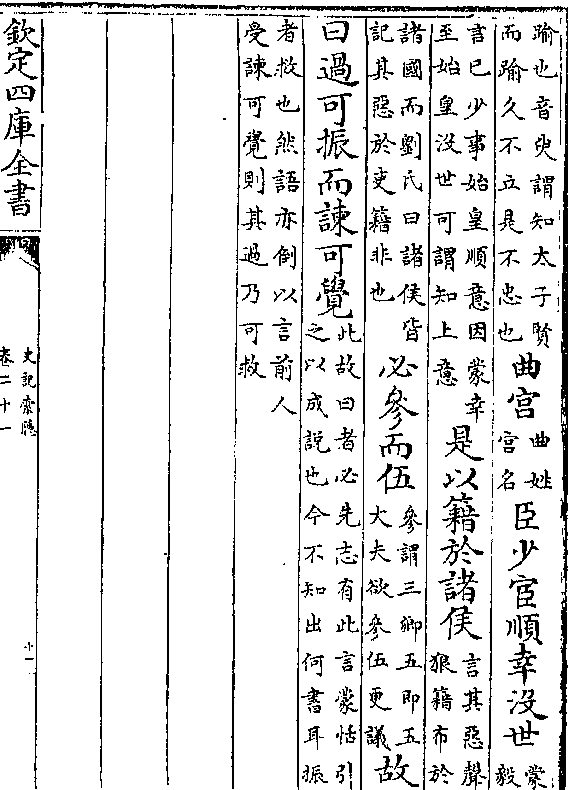 踰也音臾謂知太子賢
而踰久不立是不忠也
曲宫
曲姓
宮名
臣少宦順幸沒世
蒙
毅
言已少事始皇順意因蒙幸
至始皇沒世可謂知上意
是以籍於諸侯
言其惡聲
狼籍布於
諸國而劉氏曰諸侯皆
記其惡於史籍非也
必參而伍
參謂三卿五即五
大夫欲參伍更議
故
曰過可振而諫可覺
此故曰者必先志有此言蒙恬引
之以成説也今不知出何書耳振
者救也然語亦倒以言前人
受諫可覺則其過乃可救
欽定四庫全書
史記索隱
卷二十一